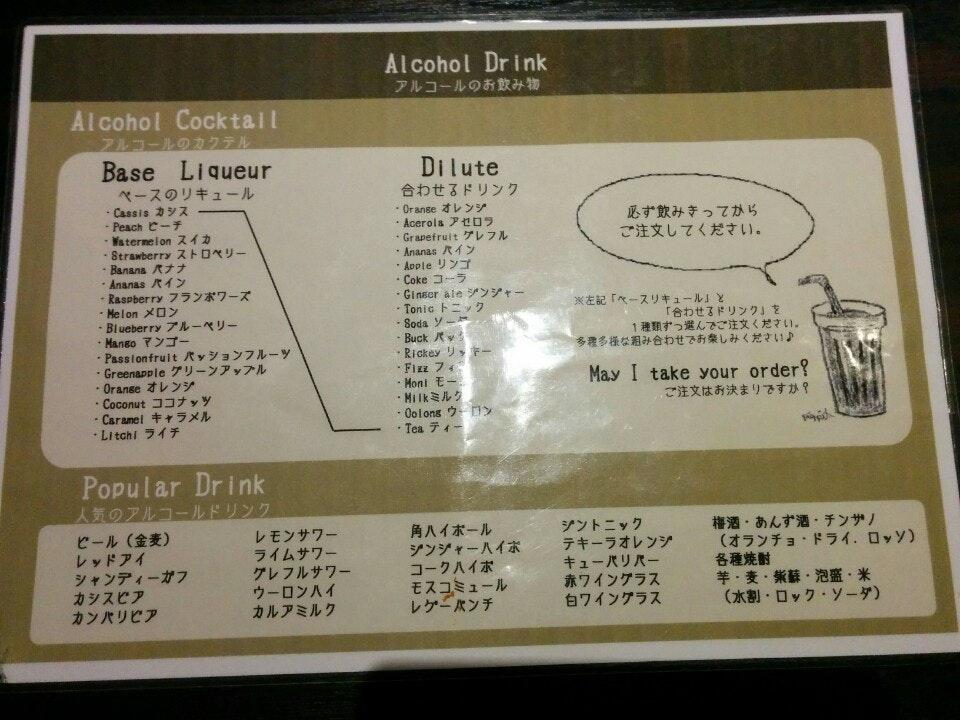 Alcohol Drink
アルコールのお飲み物
Alcohol Cocktail
アルコールのカクテル
Base Liqueur
ベースのリキュール
・Cassis カシス
・Peach ピーチ
・Watermelon スイカ
・Strawberry ストロベリー
・Banana バナナ
・Ananas パイン
・Raspberry フランボワーズ
・Melon メロン
・Blueberry ブルーベリー
・Mango マンゴー
・Passionfruit パッションフルーツ
・Greenapple グリーンアップル
・Orange オレンジ
・Coconut ココナッツ
・Caramel キャラメル
・Litchi ライチ
Dilute
合わせるドリンク
・Orange オレンジ
・Acerola アセロラ
・Grapefruit グレフル
・Ananas パイン
・Apple リンゴ
・Coke コーラ
・Ginger ale ジンジャー
・Tonic トニック
・Soda ソーダ
・Buck バック
・Rickey リッキー
・Fizz フィ
・Moni モー
・Milk ミルク
・Oolong ウーロン
・Tea ティー
必ず飲みきってから
ご注文してください。
※左記「ベースリキュール」と
「合わせるドリンク」を
1種類ずつ選んでご注文ください。
多種多様な組み合わせでお楽しみください♪
May I take your order?
ご注文はお決まりですか?
Popular Drink
人気のアルコールドリンク
ビール(金麦)
レッドアイ
シャンディーガフ
カシスビア
カンパリビア
レモンサワー
ライムサワー
グレフルサワー
ウーロンハイ
カルアミルク
角ハイボール
ジンジャーハイボ
コークハイボ
モスコミュール
レゲーパンチ
ジントニック
テキーラオレンジ
キューバリバー
赤ワイングラス
白ワイングラス
梅酒・あんず酒・チンザノ
(オランチョ・ドライ.ロッソ)
各種焼酎
芋・麦・紫蘇・泡盛・米
(水割・ロック・ソーダ)